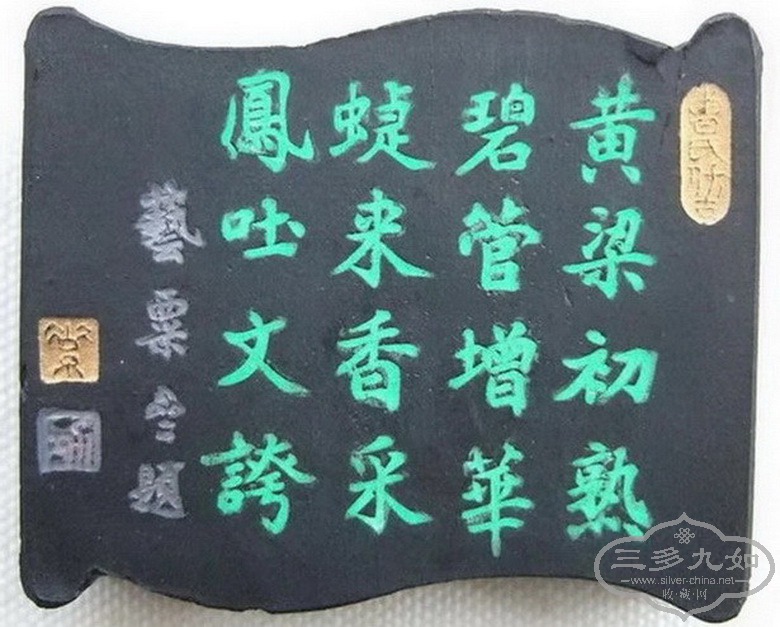 黄梁初熟
碧管增華
蜨来香采
鳳吐文誇
藝粟㞢題
三多九如
www.silver-china.net
收·藏·网